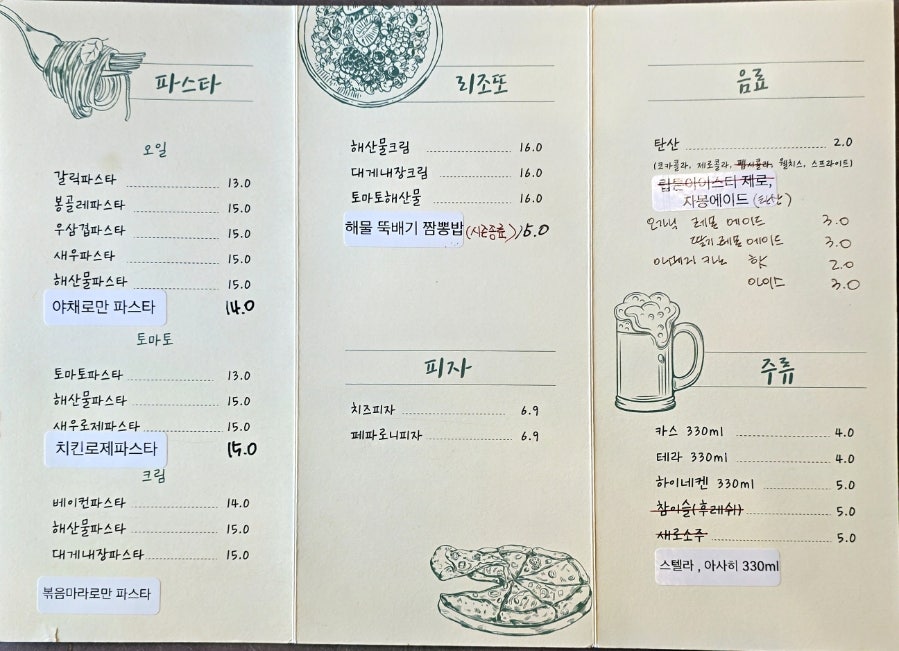 파스타
오일
갈릭파스타 13.0
봉골레파스타 15.0
우삼겹파스타 15.0
새우파스타 15.0
해산물파스타 15.0
야채로만 파스타 14.0
토마토
토마토파스타 13.0
해산물파스타 15.0
새우로제파스타 15.0
치킨로제파스타 15.0
크림
베이컨파스타 14.0
해산물파스타 15.0
대게내장파스타 15.0
볶음마라로만 파스타
리조또
해산물크림 16.0
대게내장크림 16.0
토마토해산물 16.0
해물 뚝배기 짬뽕밥 (시즌종료) 15.0
피자
치즈피자 6.9
페파로니피자 6.9
음료
탄산 2.0
(코카콜라, 제로콜라, 펩시콜라, 웰치스, 스프라이트)
립톤아이스티 제로,
자몽에이드 (탄산)
오가닉 레몬 에이드 3.0
딸기 레몬 에이드 3.0
아메리카노 핫 2.0
아이스 3.0
주류
카스 330ml 4.0
테라 330ml 4.0
하이네켄 330ml 5.0
참이슬(후레쉬) 5.0
새로소주 5.0
스텔라 , 아사히 330ml